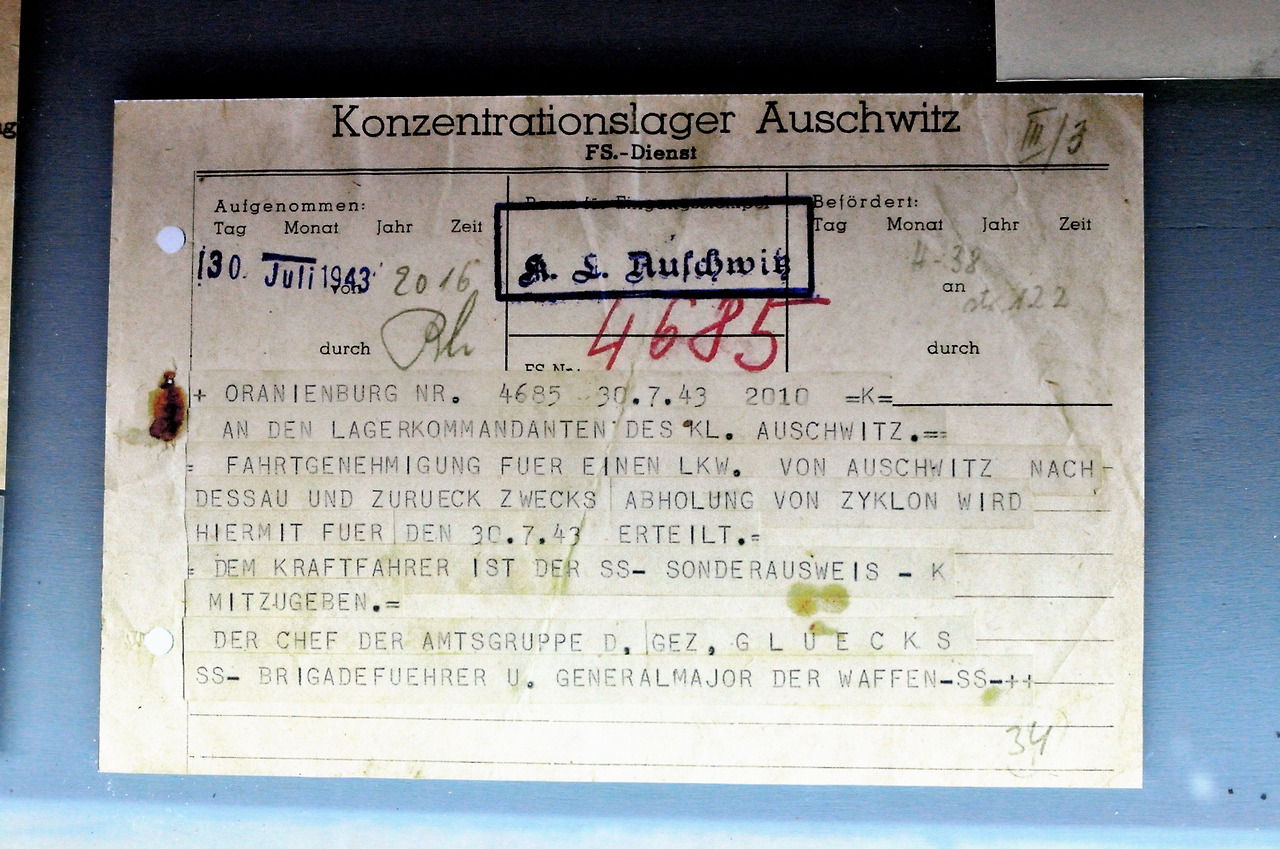 Konzentrationslager Auschwitz
III/3
FS.-Dienst
Aufgenommen:
Tag Monat Jahr Zeit
30. Juli 1943 2016
von
durch
K. L. Auschwitz
4685
FS Nr.
Befördert:
Tag Monat Jahr Zeit
an
durch
+ ORANIENBURG NR. 4685 30.7.43 2010 =K=
AN DEN LAGERKOMMANDANTEN DES KL. AUSCHWITZ.==
= FAHRTGENEHMIGUNG FUER EINEN LKW. VON AUSCHWITZ NACH-
DESSAU UND ZURUECK ZWECKS ABHOLUNG VON ZYKLON WIRD
HIERMIT FUER DEN 30.7.43 ERTEILT.=
= DEM KRAFTFAHRER IST DER SS- SONDERAUSWEIS - K
MITZUGEBEN.=
DER CHEF DER AMTSGRUPPE D, GEZ, G L U E C K S
SS- BRIGADEFUEHRER U. GENERALMAJOR DER WAFFEN-SS-++
34